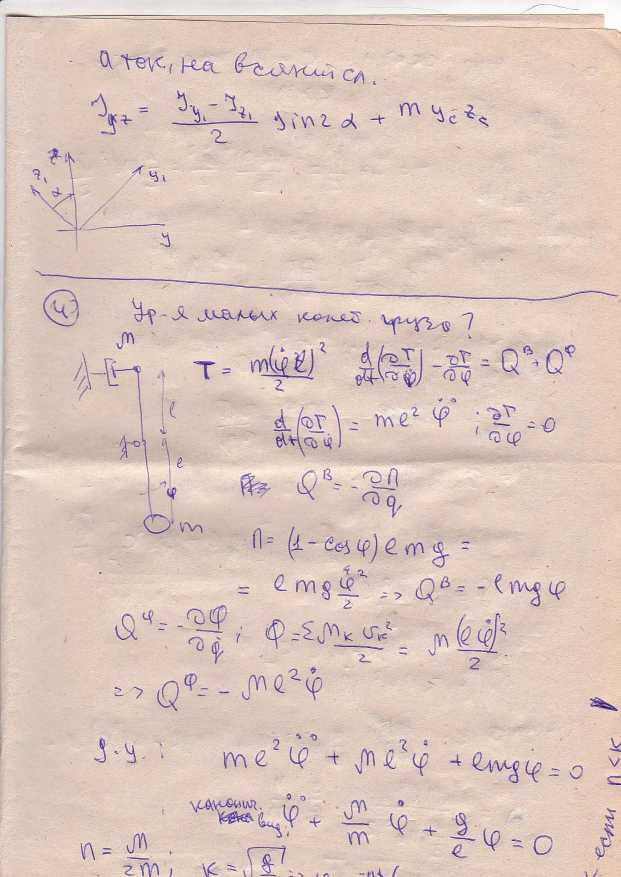 а ток, на
J_yz = (J_y₁ - J_z₁)/2 sin2α + m y_c z_c
z
z₁
α
y₁
y
4
Ур-я малых колеб. груза?
μ
l
l
φ
m
T = m(φ̇l)²/2   d/dt(∂T/∂φ̇) - ∂T/∂φ = Q^B + Q^Φ
d/dt(∂T/∂φ̇) = ml²φ̈ ; ∂T/∂φ = 0
Q^B = -∂П/∂q
П = (1-cosφ)lmg =
= lmg φ²/2 => Q^B = -lmgφ
Q^Φ = -∂Φ/∂q̇ ; Φ = Σμ_к v_к²/2 = μ(lφ̇)²/2
=> Q^Φ = -μl²φ̇
д.у.: ml²φ̈ + μl²φ̇ + lmgφ = 0
канонич. вид: φ̈ + μ/m φ̇ + g/l φ = 0
n = μ/2m ; k = √g/l
если n < k